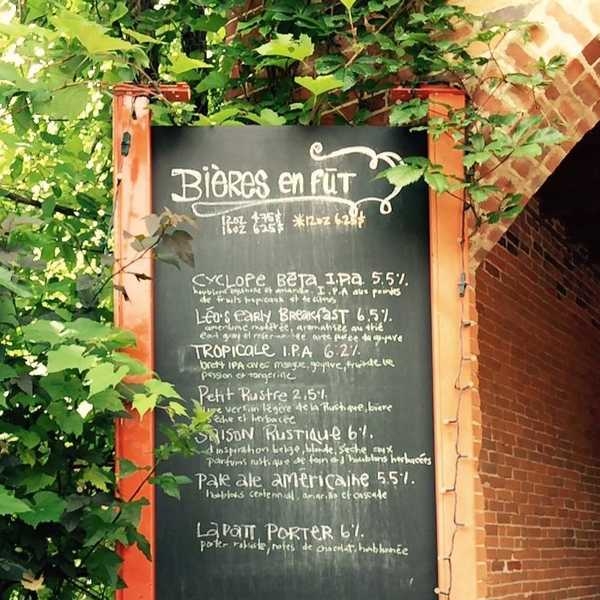 Bières en fût
12oz 4.75$ *12oz 6.25$
16oz 6.25$
Cyclope Bêta I.P.A 5.5%
I.P.A aux pointes
de fruits tropicaux et
Léo's early Breakfast 6.5%
américaine aromatisée au thé
earl gray et avec purée de goyave
Tropicale I.P.A 6.2%
brett IPA avec mangue, goyave, fruit de la
passion et tangerine
Petit Rustre 2.5%
une version légère de la Rustique, bière
sèche et herbacée
Saison Rustique 6%
d'inspiration belge, blonde, sèche aux
parfums rustique de foin et houblons herbacées
Pale ale américaine 5.5%
houblons centennial, amarillo et cascade
Lavatt Porter 6%
porter robuste, notes de chocolat, houblonnée